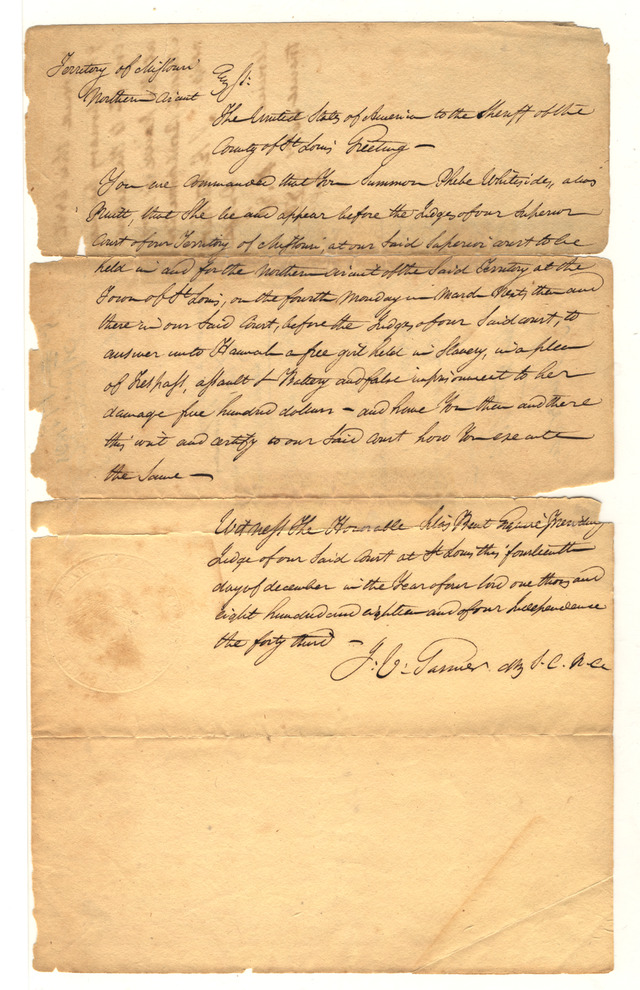 Territory of Missouri
Northern Circuit
The United States of America to the Sheriff of the
County of St Louis Greeting —
You are Commanded that You Summon Phebe Whiteside, alias
Pruitt, that She be and appear before the Judges of our Superior
Court of our Territory of Missouri, at our Said Superior Court to be
held in and for the Northern Circuit of the Said Territory at the
Town of St Louis, on the fourth Monday in March Next, then and
there in our Said Court, before the Judges of our Said Court, to
answer unto Hannah a free girl held in Slavery, in a plea
of Trespass, assault & Battery and false imprisonment to her
damage five hundred dollars — and have You then and there
this writ and certify to our Said Court how You execute
the Same —
Witness The Honorable Silas Bent Esquire Presiding
Judge of our Said Court at St Louis this fourteenth
day of december in the Year of our lord one thousand
eight hundred and eighteen and of our Independence
the forty third —
J: V: Garnier S. C. N. C.